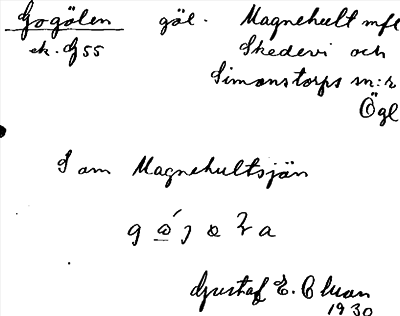 Gogölen göl. Magnehult mfl
ek. G 55 Skedevi och
Simonstorps sn:r
Ögl
S om Magnehultsjön
Gustaf E. Cluan
1930